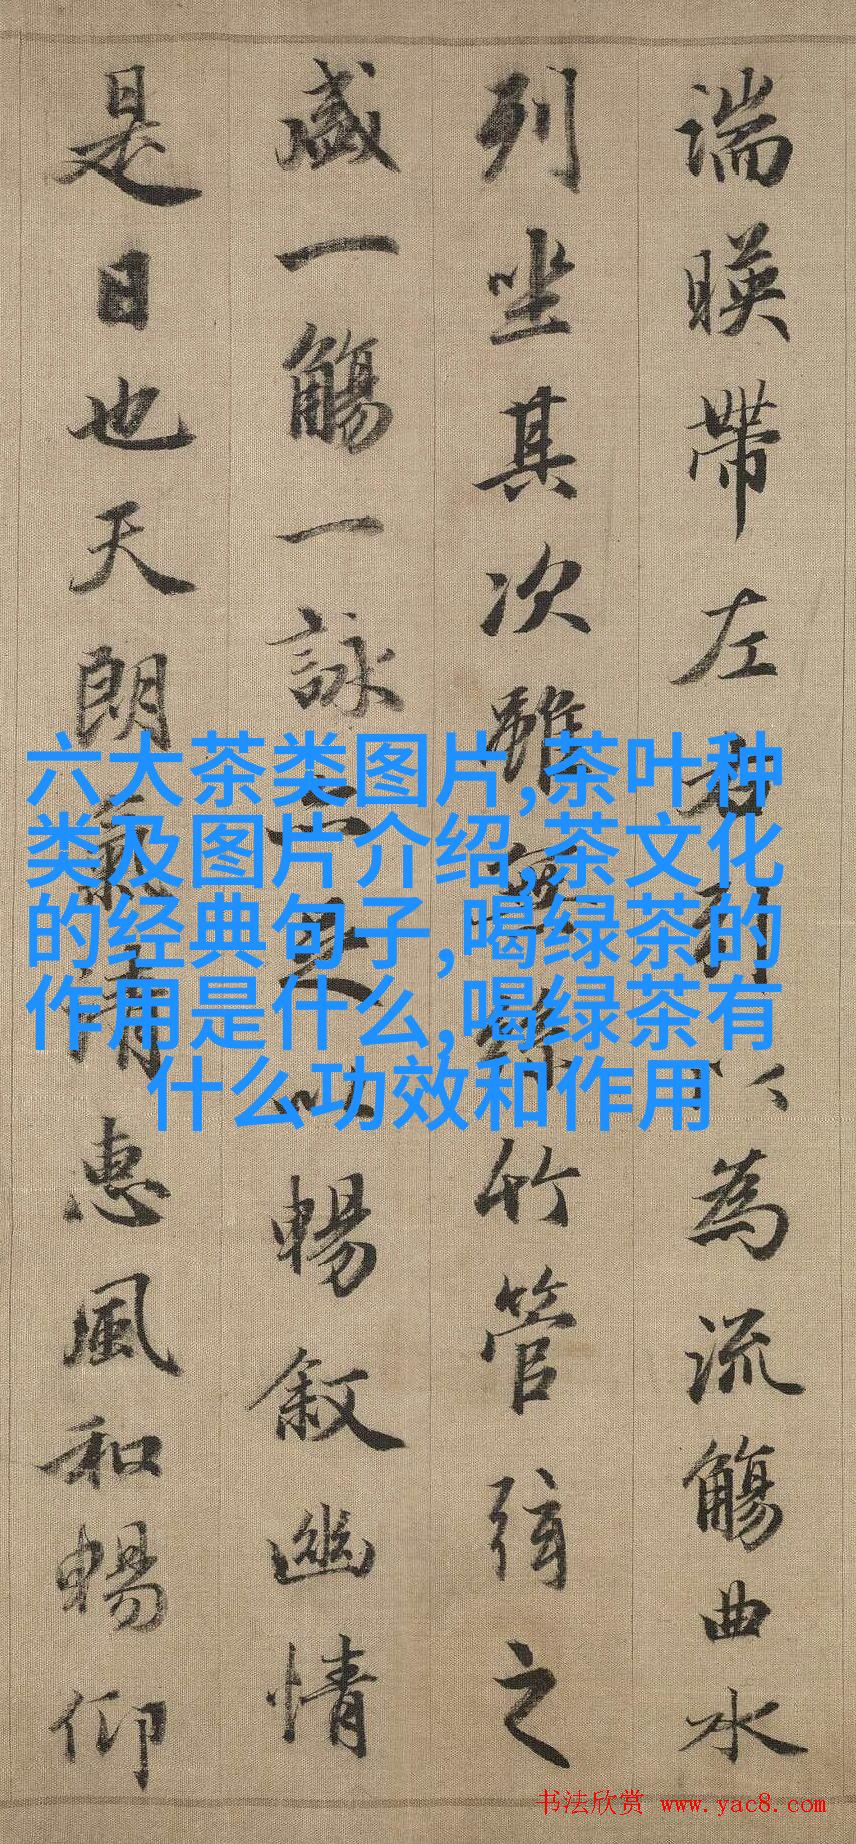 湍暎帶左右引以為流觴曲水
列坐其次雖無絲竹管弦之
盛一觴一詠亦足以暢敘幽情
是日也天朗氣清惠風和暢仰
六大茶类图片,茶叶种
类及图片介绍,茶文化
的经典句子,喝绿茶的
作用是什么,喝绿茶有
什么功效和作用
书法欣赏 www.yac8.com